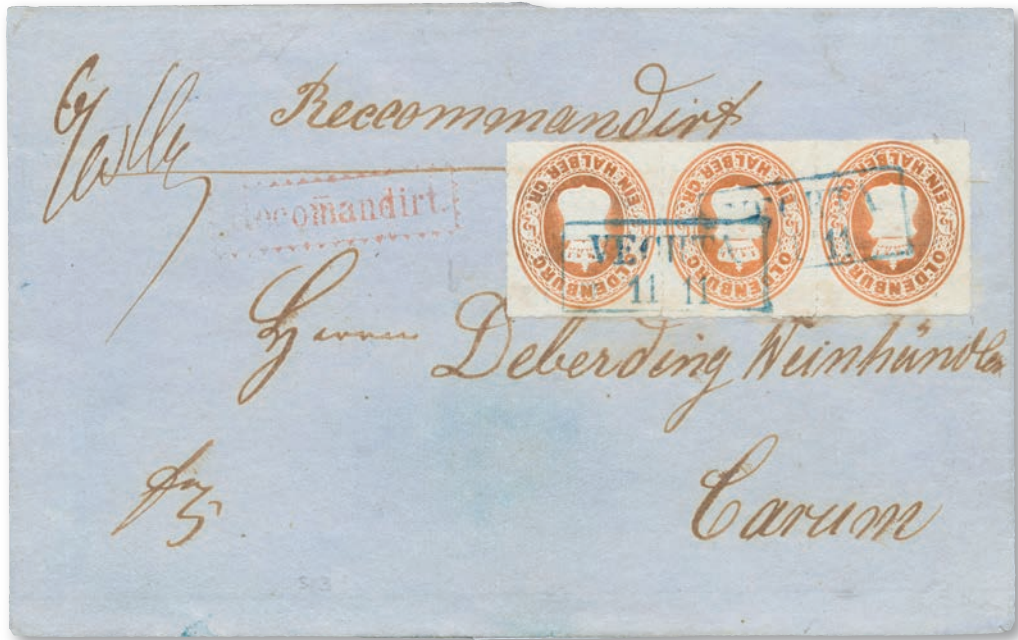 Reccommandirt
Recomandirt.
EIN HALBER GR. OLDENBURG
EIN HALBER GR. OLDENBURG
EIN HALBER GR. OLDENBURG
VECHTA
11
VECHTA
11 11
Herrn Deberding Weinhändler
Carum